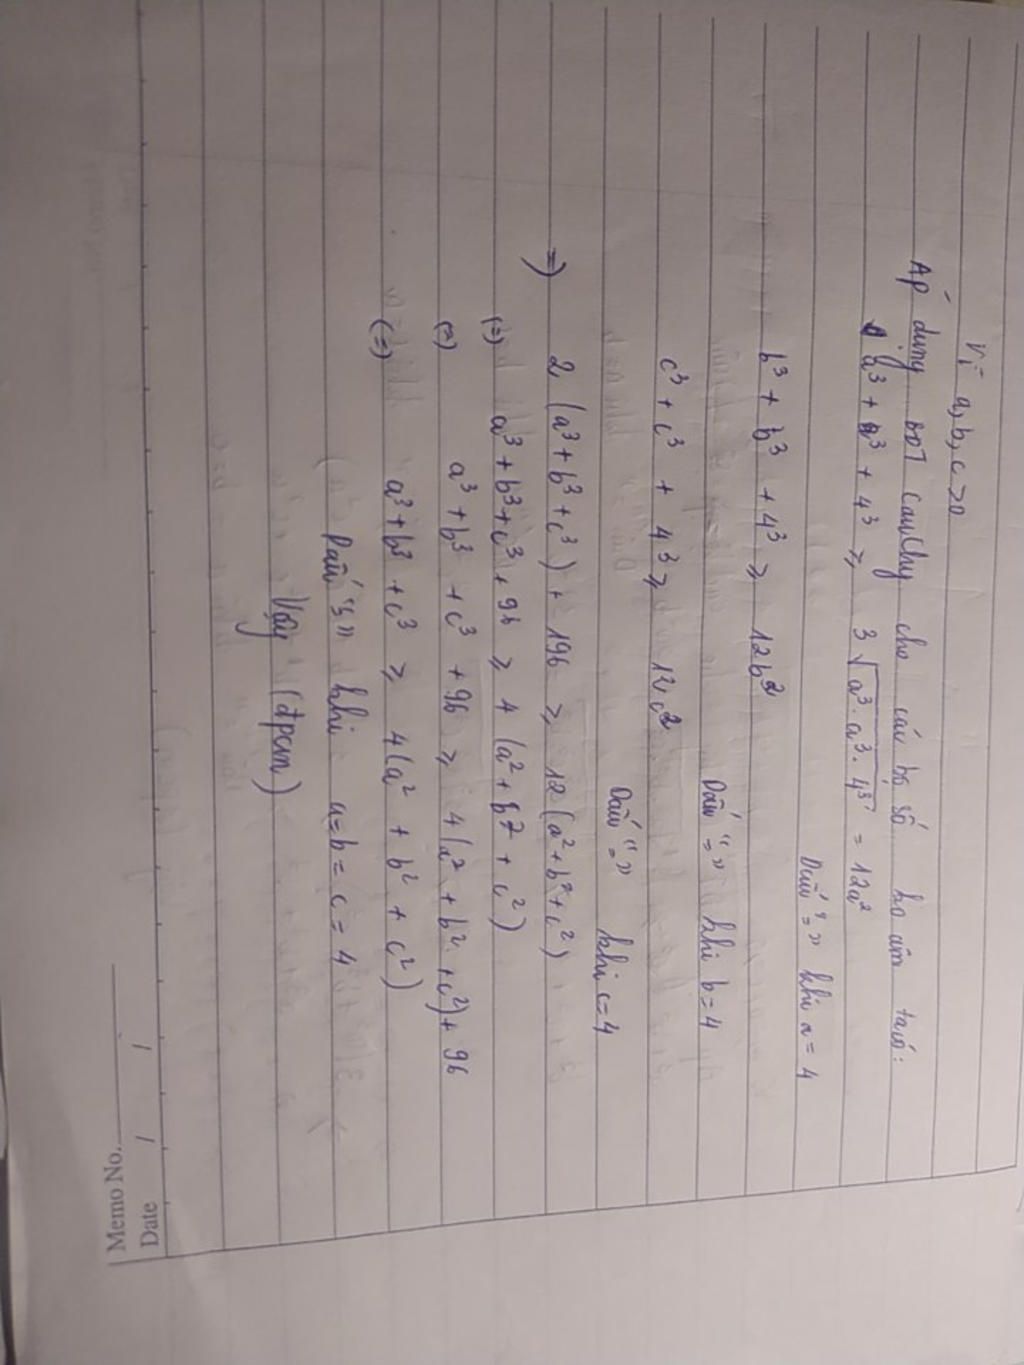 Vì a, b, c > 0
Áp dụng BĐT Cauchy cho các bộ số ko âm ta có:
a³ + a³ + 4³ ≥ 3√a³.a³.4³ = 12a²
Dấu "=" khi a = 4
b³ + b³ + 4³ ≥ 12b²
Dấu "=" khi b = 4
c³ + c³ + 4³ ≥ 12c²
Dấu "=" khi c = 4
=) 2(a³ + b³ + c³) + 196 ≥ 12(a² + b² + c²)
(=) a³ + b³ + c³ + 96 ≥ 4(a² + b² + c²)
(=) a³ + b³ + c³ + 96 ≥ 4(a² + b² + c²) + 96
(=) a³ + b³ + c³ ≥ 4(a² + b² + c²)
Dấu "=" khi a = b = c = 4
Vậy (đpcm)
Memo No.
Date / /